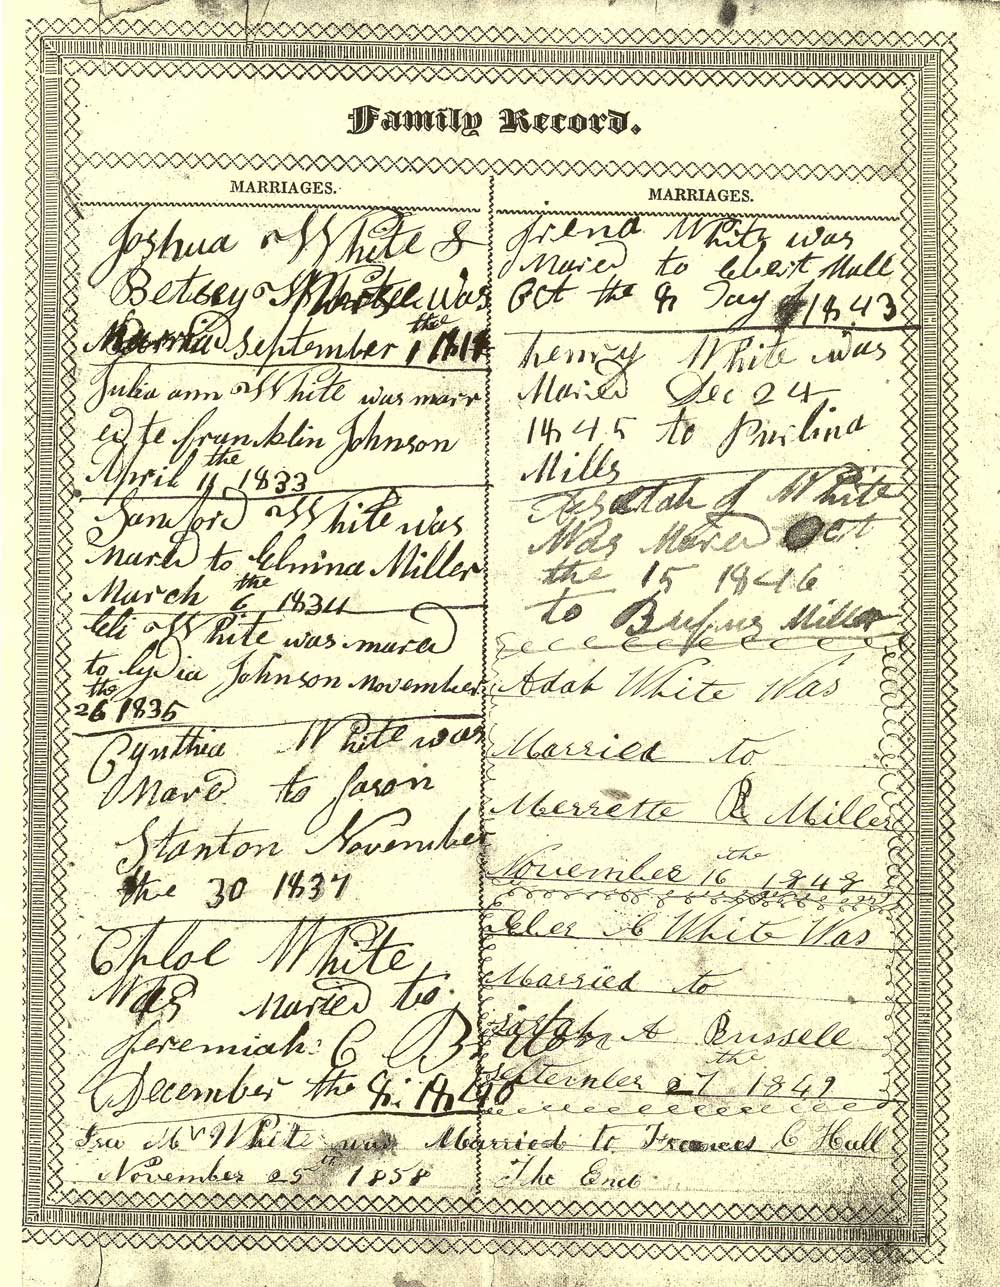 Family Record.
MARRIAGES.
Joshua White &
Betsey was
September 1 the
Julia ann White was marr
ed to franklin Johnson
April 11 the 1833
Sanford White was
mared to Elmina Miller
March the 6 1834
Eli White was mared
to lydia Johnson November
the 26 1835
Cynthia White was
Mared to Jason
Stanton November
the 30 1837
Chloe White
Was maried to
Jeremiah C
December the 8
MARRIAGES.
Irena White was
Mared to Hall
Oct the 8 Day of 1843
henry White was
Maried Dec 24
1845 to Purlina
Mills
White
Was Mared Oct
the 15 1846
to Rufus Miller
Adah White Was
Married to
Merrette R Miller
November 16 the 1848
White Was
Married to
A Russell
September 27 the 1849
Ira M White was Married to Frances C Hall
November 25 th 1858 The End